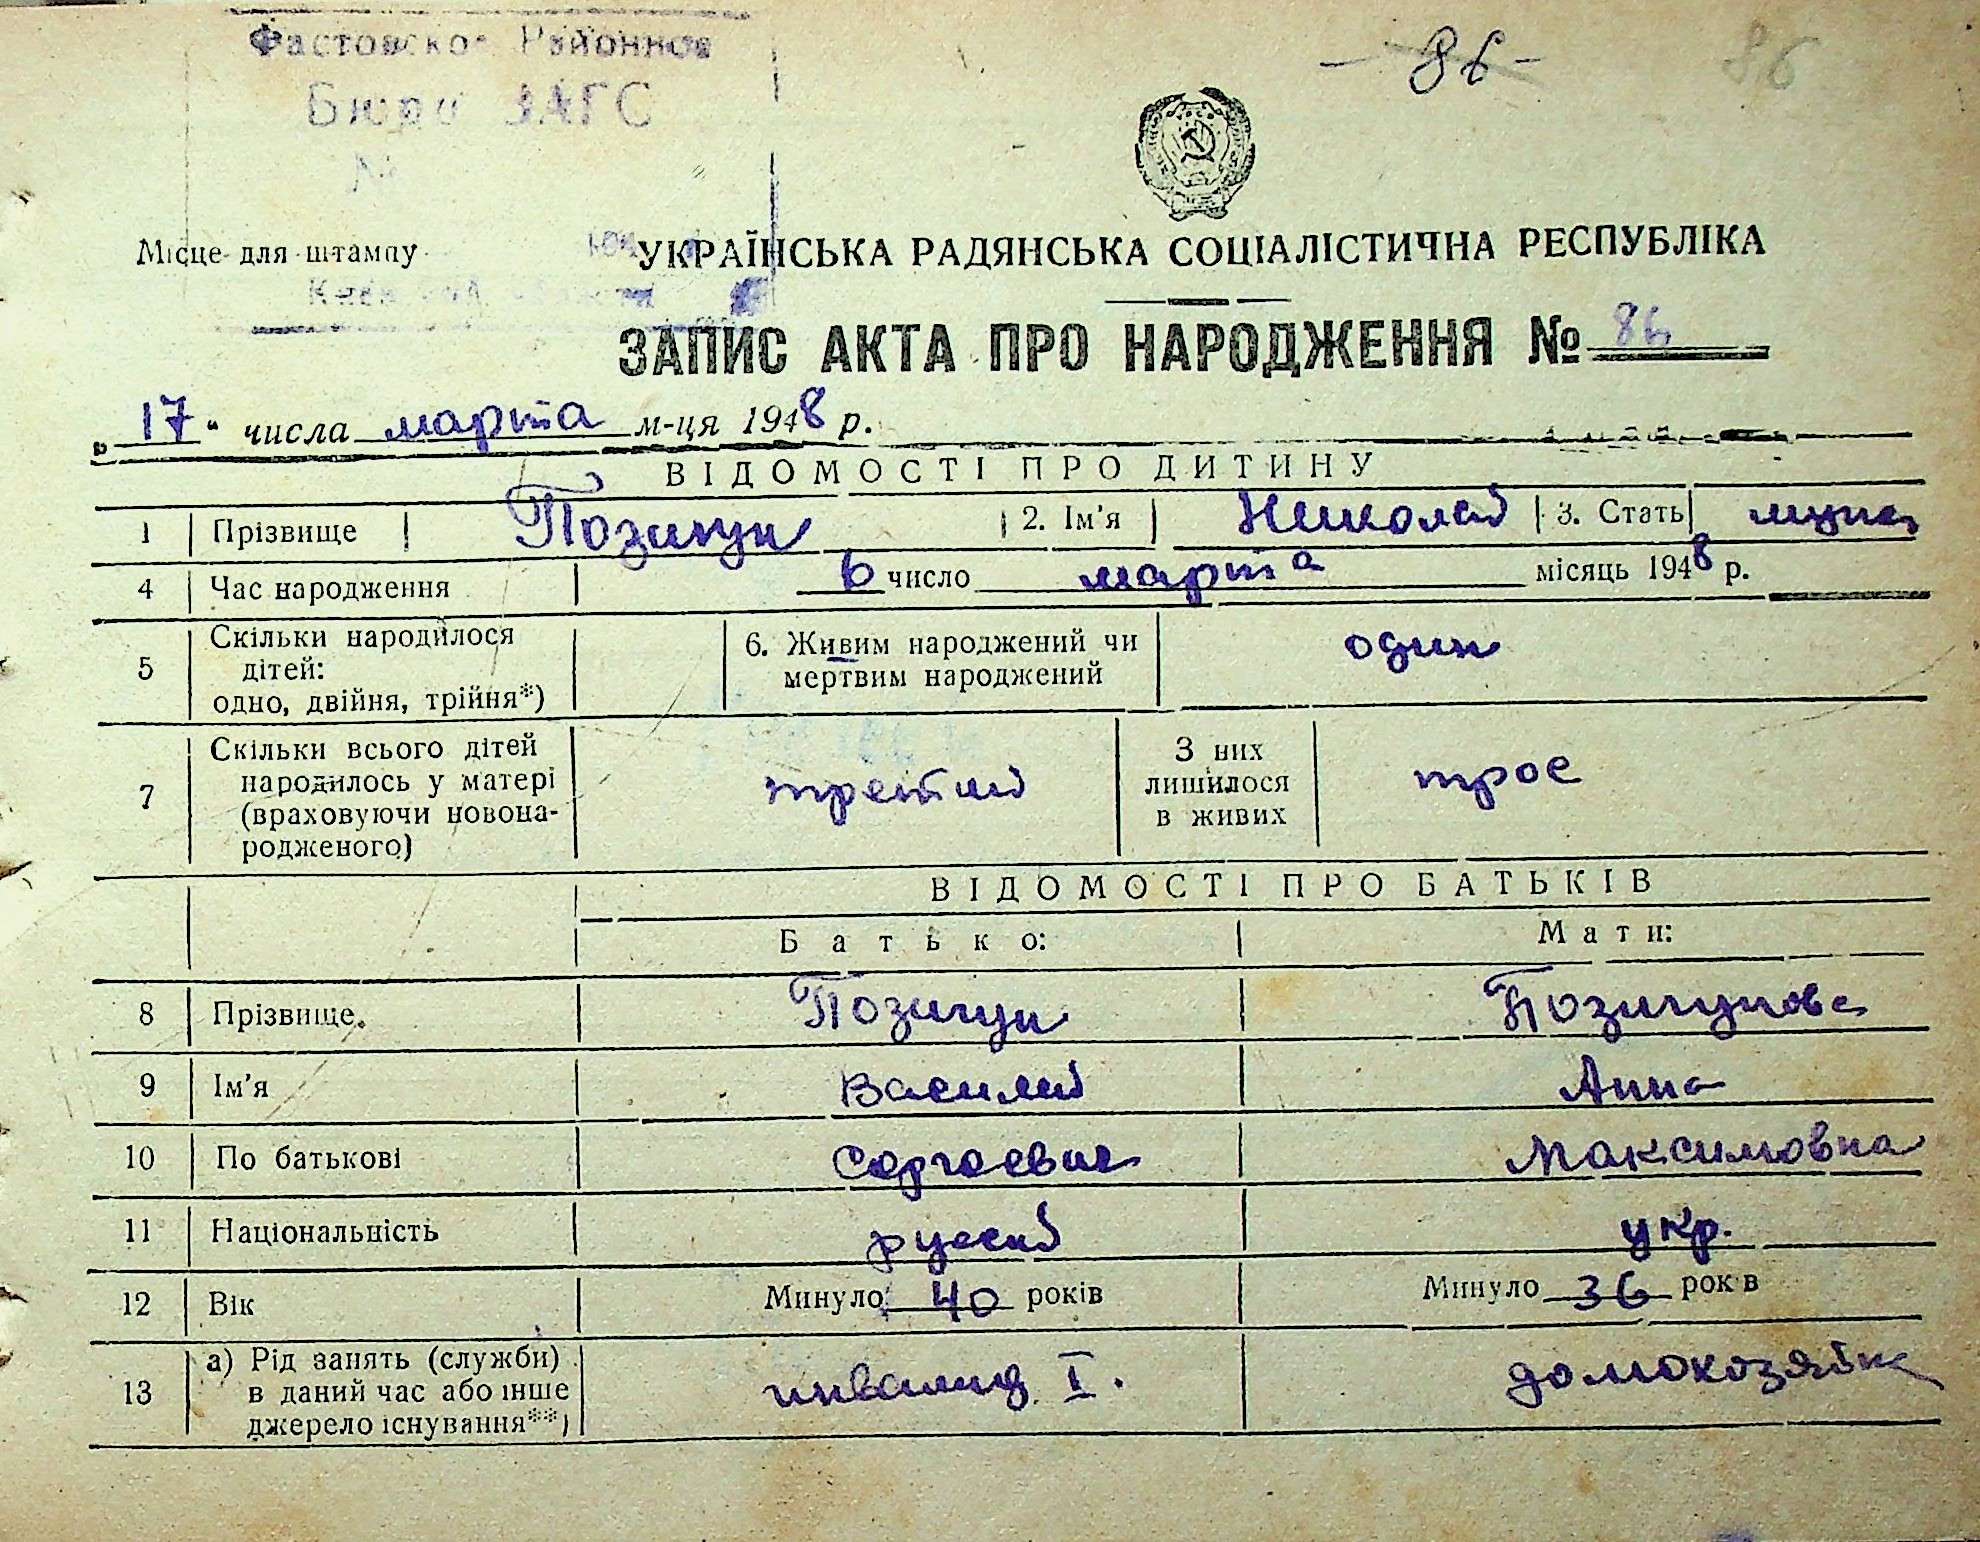 Фастовское Районное
- 86 -
86
Бюро ЗАГС
№
Місце для штампу
УКРАЇНСЬКА РАДЯНСЬКА СОЦІАЛІСТИЧНА РЕСПУБЛІКА
ЗАПИС АКТА ПРО НАРОДЖЕННЯ № 86
„17“ числа марта м-ця 1948 р.
ВІДОМОСТІ ПРО ДИТИНУ
1 Прізвище Позигун 2. Ім’я Николай 3. Стать муж
4 Час народження 6 число марта місяць 1948 р.
5 Скільки народилося дітей: одно, двійня, трійня*)
6. Живим народжений чи мертвим народжений один
7 Скільки всього дітей народилось у матері (враховуючи новонародженого) третий З них лишилося в живих трое
ВІДОМОСТІ ПРО БАТЬКІВ
Батько: Мати:
8 Прізвище Позигун Позигунова
9 Ім’я Василий Анна
10 По батькові Сергеевич Максимовна
11 Національність русский укр.
12 Вік Минуло 40 років Минуло 36 рок в
13 а) Рід занять (служби) в даний час або інше джерело існування**) инвалид I. домохозяйка